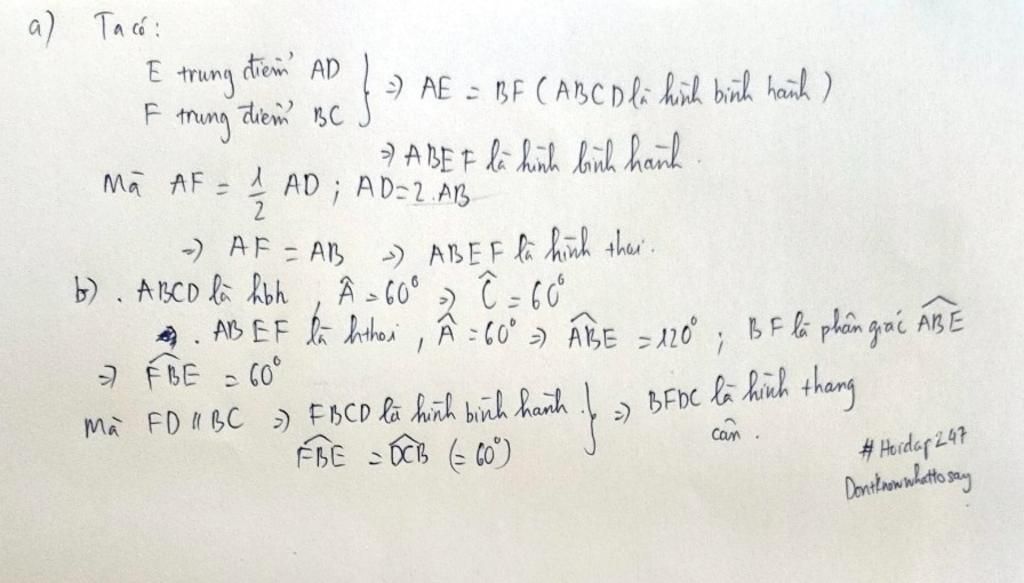 a) Ta có:
E trung điểm AD
F trung điểm BC } => AE = BF (ABCD là hình bình hành)
=> ABEF là hình bình hành.
Mà AF = 1/2 AD ; AD=2.AB
=> AF = AB => ABEF là hình thoi.
b) . ABCD là hbh , Â = 60° => Ĉ = 60°
. ABEF là hthoi , Â = 60° => ABÊ = 120° ; BF là phân giác ABÊ
=> FBÊ = 60°
Mà FD // BC => FBCD là hình bình hành. } => BFDC là hình thang
FBÊ = DCB̂ (= 60°) cân.
# Hoidap247
Dontknowwhattosay